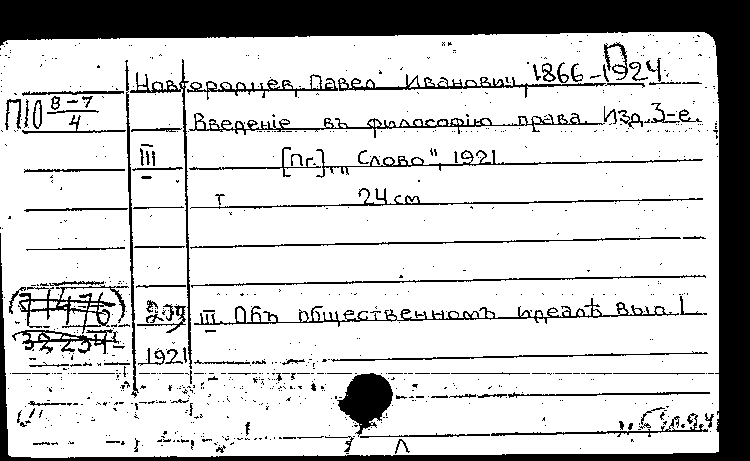 П
Новгородцев, Павел Иванович, 1866-1924
П10 8-7/4
Введенiе въ философiю права. Изд. 3-е.
III [Пг.], „Слово", 1921
т 24 см
71476 209 III. Объ общественномъ идеалѣ вып. 1
32234
1921